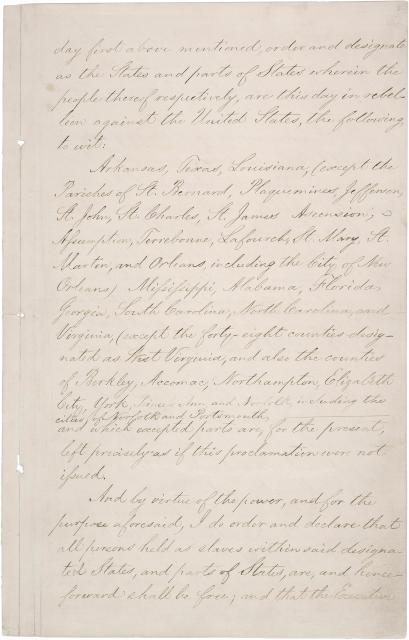 day first above mentioned, order and designate
as the States and parts of States wherein the
people thereof respectively, are this day in rebel-
lion against the United States, the following,
to wit:
Arkansas, Texas, Louisiana, (except the
Parishes of St. Bernard, Plaquemines, Jefferson,
St. John, St. Charles, St. James Ascension,
Assumption, Terrebonne, Lafourche, St. Mary, St.
Martin, and Orleans, including the City of New
Orleans) Mississippi, Alabama, Florida,
Georgia, South Carolina, North Carolina, and
Virginia, (except the forty-eight counties desig-
nated as West Virginia, and also the counties
of Berkley, Accomac, Northampton, Elizabeth
City, York, Princess Ann, and Norfolk, including the
cities of Norfolk and Portsmouth
and which excepted parts are, for the present,
left precisely as if this proclamation were not
issued.
And by virtue of the power, and for the
purpose aforesaid, I do order and declare that
all persons held as slaves within said designa-
ted States, and parts of States, are, and hence-
forward shall be free; and that the Executive